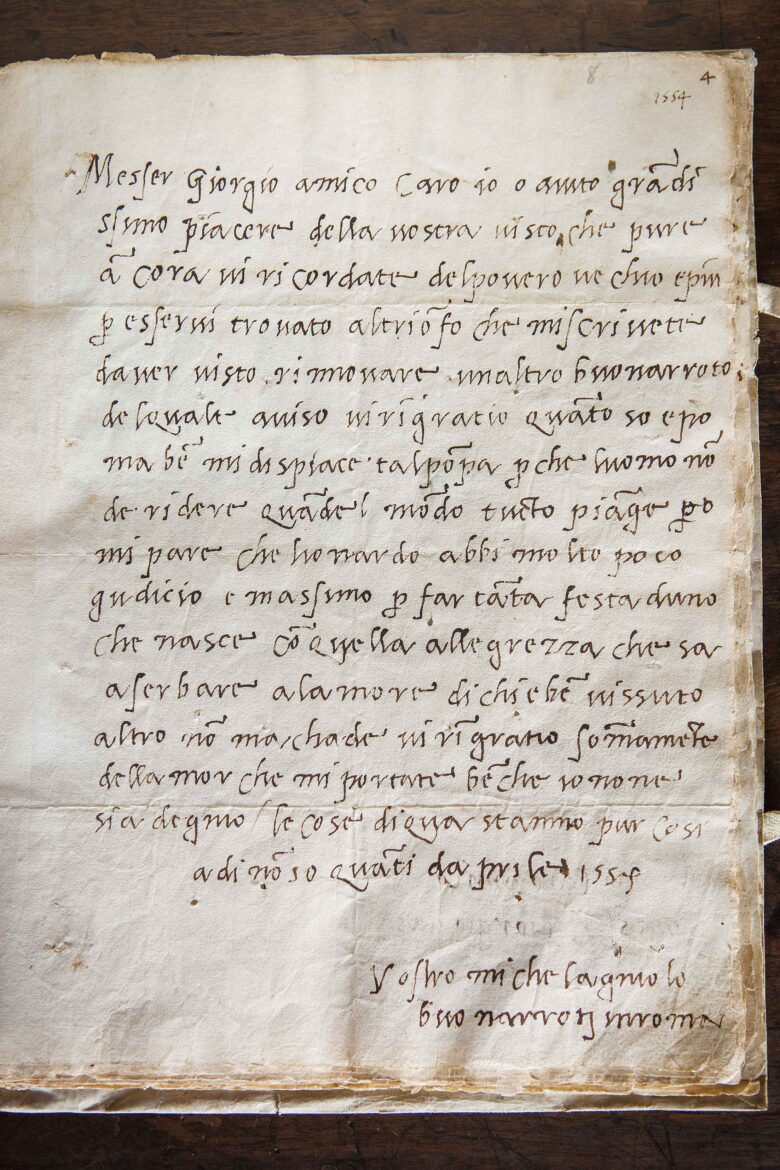 4
1554
Messer Giorgio amico Caro io o auuto grādi
ssimo piacere della uostra uisto che pure
ā Cora ui ricordate del pouero uechio e piu
p̱ esserui trouato al triōfo che mi scriuete
dauer uisto rimouare unaltro buonarroto
del quale auiso ui rīgratio quāto so e po
ma bē mi dispiace tal pōpa p̱che luomo nō
de ridere quāde l mōdo tucto piāge p̱o
mi pare che lionardo abbi molto poco
gudicio e massimo p̱ far tāta festa duno
che nasce cō quella allegrezza che sa
a serbare a la more di chi e bē uissuto
altro nō macchade ui rīgratio sommamēte
dellamor che mi portate bēche io none
sia degnio le cose di qua stanno pur cosi
a di nō so quāti daprile
Vostro michelagniolo
buonarroti in roma